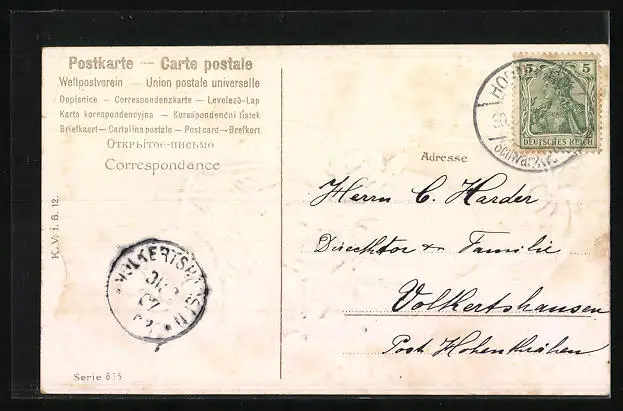 Postkarte — Carte postale
Weltpostverein — Union postale universelle
Dopisnice — Correspondenzkarte — Levelező-Lap
Karta korespondencyjna — Korespondenční lístek
Briefkaart — Cartolina postale — Post card — Brefkort
Открытое письмо
Correspondance
5 5
DEUTSCHES REICH
Adresse
Herrn C. Harder
Direcktor & Familie
Volkertshausen
Post Hohenkrähen
K.V. i. B. 12.
VOLKERTSHAUSEN
Serie 615